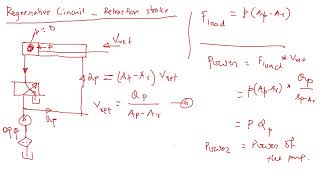 Regenerative Circuit - Retraction stroke
P=0
Vret
Qp = (Ap - Ar) Vret
Vret = Qp / Ap - Ar
Qp
Qp
P
Fload = p(Ap - Ar)
Power = Fload * Vret
= p(Ap - Ar) * Qp / Ap - Ar
= p Qp
Power = Power of
the pump.